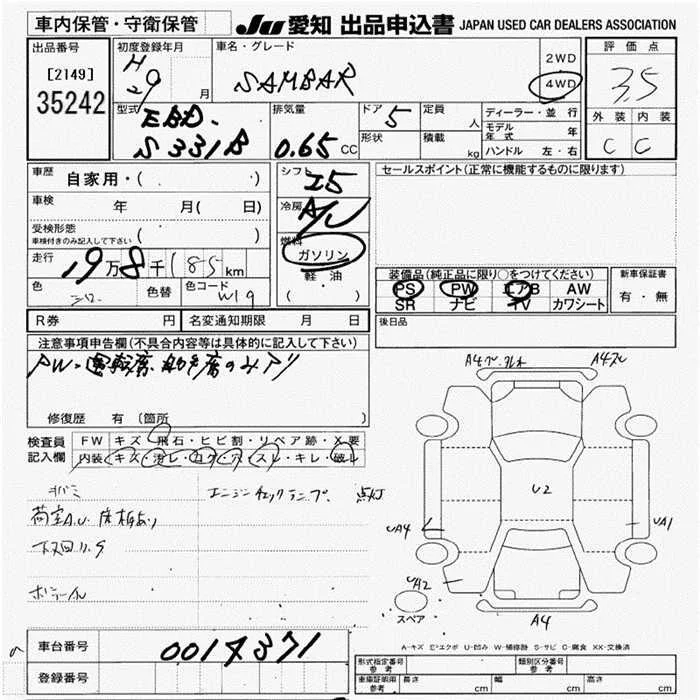 車内保管・守衛保管
JU 愛知 出品申込書 JAPAN USED CAR DEALERS ASSOCIATION
出品番号
[2149]
35242
初度登録年月
H
29 月
車名・グレード
SAMBAR
2WD
4WD
評価点
3.5
外装 内装
C C
型式
EBD-
S331B
排気量
0.65 CC
ドア 5
形状
定員 人
積載 kg
ディーラー・並行
モデル年式 年
ハンドル 左・右
車歴 自家用・( )
車検 年 月( 日)
受検形態
車検付きのみ記入して下さい ( )
走行 19万8千185km
色 シロ 色替 色コード W19
シフト I5
冷房 A/C
燃料
ガソリン
軽油
( )
セールスポイント(正常に機能するものに限ります)
装備品(純正品に限り○をつけてください)
PS PW エアB AW
SR ナビ TV カワシート
新車保証書
有・無
後日品
R券 円 名変通知期限 月 日
注意事項申告欄(不具合内容等は具体的に記入して下さい)
PW・運転席 助手席のみアリ
修復歴 有〔箇所 〕
検査員
記入欄
FW キズ・飛石・ヒビ割・リペア跡・X要
内装 キズ・汚レ・コゲ・穴・スレ・キレ・破レ
エンジンチェックランプ 点灯
荷室A.U 床板あり
下回りS
A4
U2
UA4
UA1
UA2
A4
スペア
A-キズ E-エクボ U-凹み W-補修跡 S-サビ C-腐食 XX-交換済
車台番号 0014371
登録番号
形式指定番号 参考
類別区分番号 参考
車庫証明用 参考 長さ cm 幅 cm 高さ cm